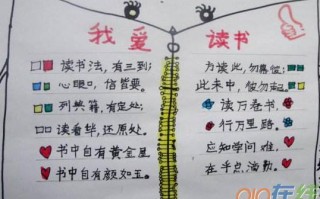 我爱 读书
读书法，有三到；
心眼口，信皆要。
列典籍，有定处；
读看毕，还原处。
书中自有黄金屋
书中自有颜如玉。
方读此，勿慕彼；
此未中，彼勿起。
读万卷书，
行万里路。
应知学问难，
在乎点滴勤。